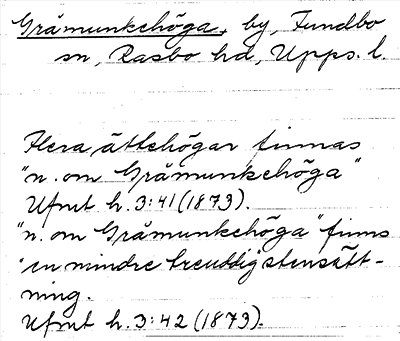 Gråmunkehöga, by, Fundbo
sn, Rasbo hd, Upps. l.
Flera ättehögar finnas
"n. om Gråmunkehöga"
Ufmt h. 3:41 (1873).
"n. om Gråmunkehöga" finns
"en mindre treuddig stensätt-
ning.
Ufmt h. 3:42 (1873).